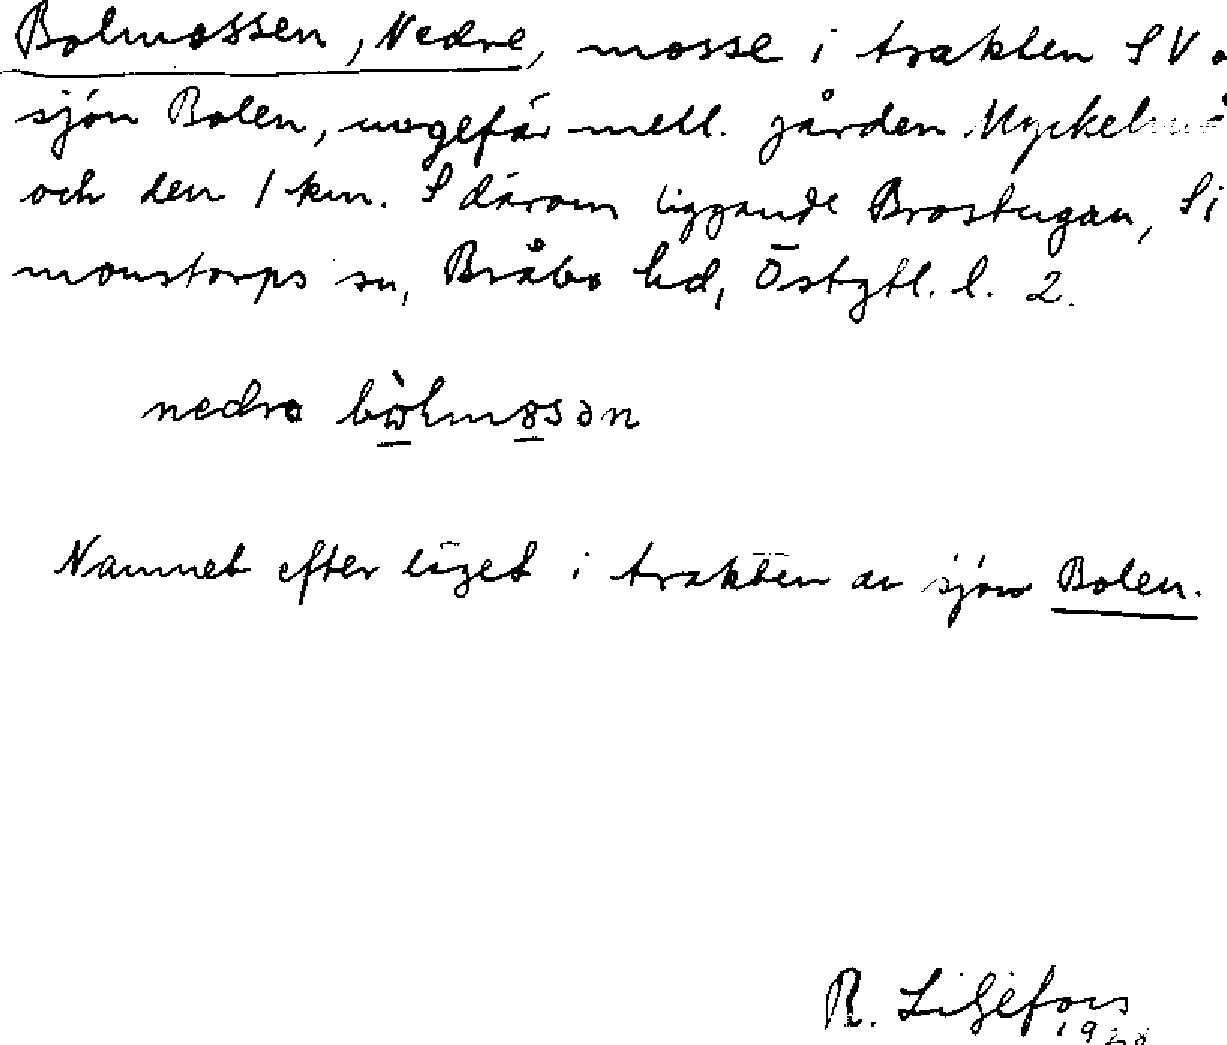 Bolmossen, Nedre, mosse i trakten SV
sjön Bolen, ungefär mell. gården
och den 1 km. S därom liggande Brostugan, Si
monstorps sn, Bråbo hd, Östgtl. l. 2.
nedrə
Namnet efter läget i trakten av sjön Bolen.
R. Liljefors